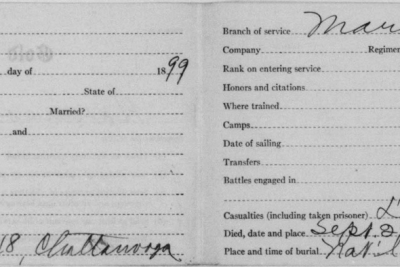 day of 1899
State of
Married?
and
18, Chattanooga
Branch of service
Company Regimen
Rank on entering service
Honors and citations
Where trained
Camps
Date of sailing
Transfers
Battles engaged in
Casualties (including taken prisoner)
Died, date and place Sept. 2
Place and time of burial Nat'l